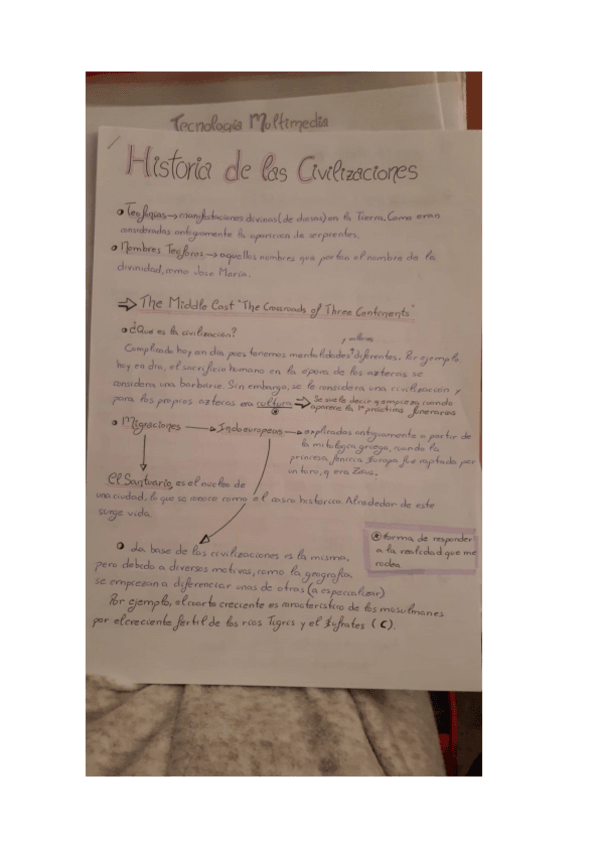 Tecnología Multimedia
Historia de las Civilizaciones
Teofanías → manifestaciones divinas (de dioses) en la Tierra. Como eran
consideradas antiguamente la aparición de serpientes.
Nombres Teóforos → aquellos nombres que portan el nombre de la
divinidad, como Jose María.
⇒ The Middle East "The Crossroads of Three Contenents"
¿Que es la civilización?
y valores
Complicado hoy en día pues tenemos mentalidades diferentes. Por ejemplo
hoy en día, el sacrificio humano en la época de los aztecas se
considera una barbarie. Sin embargo, se le considera una civilización y
para los propios aztecas era cultura ⇒ Se suele decir q empieza cuando
aparece la 1ª prácticas funerarias
Migraciones → Indoeuropeas → explicadas antiguamente a partir de
la mitología griega, cuando la
princesa fenicia Europa fue raptada por
un toro, q era Zeus.
El Santuario, es el núcleo de
una ciudad, lo que se conoce como el casco histórico. Alrededor de este
surge vida.
* forma de responder
a la realidad que me
rodea
La base de las civilizaciones es la misma,
pero debido a diversos motivos, como la geografía
se empiezan a diferenciar unas de otras (a especializar)
Por ejemplo, el cuarto creciente es característico de los musulmanes
por el creciente fértil de los ríos Tigris y el Éufrates (C).